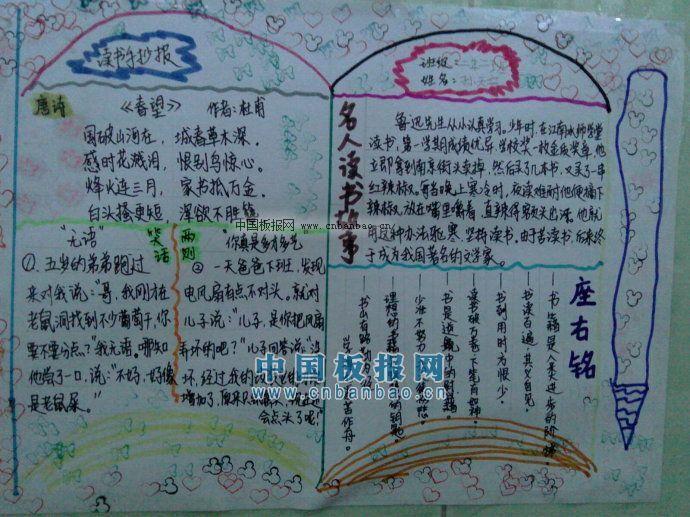 读书手抄报
唐诗
《春望》 作者：杜甫
国破山河在，城春草木深。
感时花溅泪，恨别鸟惊心。
烽火连三月，家书抵万金。
白头搔更短，浑欲不胜簪
笑话
两则
"无语"
①．五岁的弟弟跑过
来对我说："哥，我刚才在
老鼠洞找到不少葡萄干，你
要不要分点？"我无语。哪知
他尝了一口，说："不妈，好像
是老鼠屎。"
你真是多才多艺
②一天爸爸下班，发现
电风扇有点不对头。就对
儿子说："儿子，是你把风扇
弄坏的吧？"儿子回答说："没
坏，经过我的改
增加了，原来只
会点头了呢！"
班级：二年二
姓名：
名人读书故事
鲁迅先生从小认真学习。少年时，在江南水师学堂
读书，第一学期成绩优异，学校奖一枚金质奖章。他
立即拿到南京街头卖掉，然后买了几本书，又买了一串
红辣椒。每当晚上寒冷时，夜读难耐他便摘下
辣椒，放在嘴里嚼着，直辣得额头出汗。他就
用这种办法驱寒坚持读书。由于苦读，后来终
于成为我国著名的文学家。
座右铭
——书籍是人类进步的阶梯
——书读百遍，其义自见。
——书到用时方恨少。
——读书破万卷，下笔有如神。
——书是
——少壮不努力
——理想的书籍
——书山有路
中国板报网
www.cnbanbao.cn
中国板报网
www.cnbanbao.cn